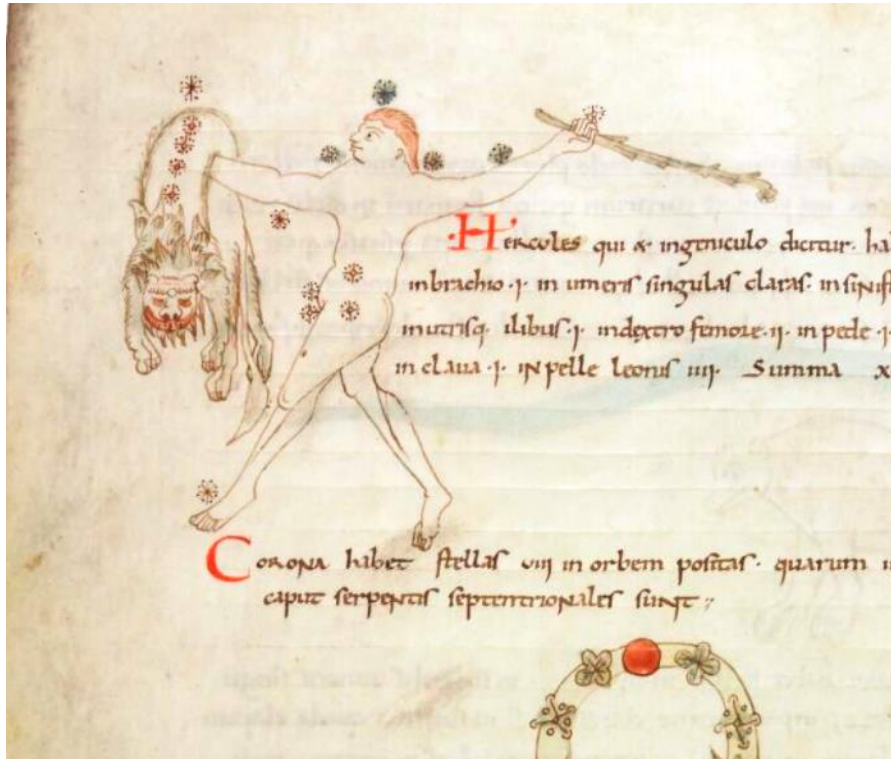 HERCULES qui & ingeniculo dicitur· ha
in brachio ·i· in umeris singulas claras· in sinist
in utrisq· ilibus ·i· in dextro femore ·ii· in pede ·i·
in claua ·i· IN pelle leonis iiii· Summa x
CORONA habet stellas viiij in orbem positas· quarum
caput serpentis septentrionales sunt;